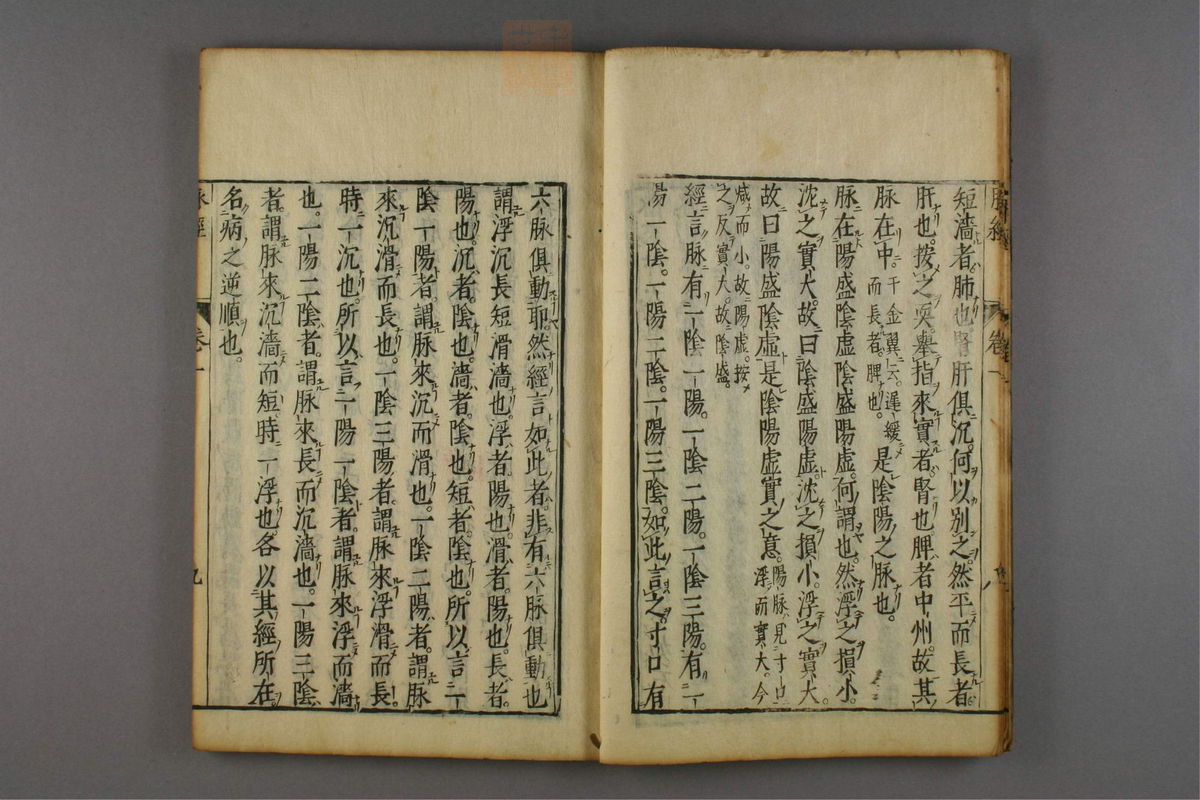 短濇者肺也腎肝俱沉何以別之然牢而長者
肝也按之耎舉指來實者腎也脾者中州故其
脉在中千金翼云遲緩而長者脾也是陰陽之脉也
脉在陽盛陰虛陰盛陽虛何謂也然浮之損小
沈之實大故曰陰盛陽虛沈之損小浮之實大
故曰陽盛陰虛是陰陽虛實之意陽脉見寸口浮而實大今
減而小故陽虛按之反實大故陰盛
經言脉有一陰一陽一陰二陽一陰三陽有一
陽一陰一陽二陰一陽三陰如此言之寸口有
六脉俱動耶然經言如此者非有六脉俱動也
謂浮沉長短滑濇也浮者陽也滑者陽也長者
陽也沉者陰也濇者陰也短者陰也所以言一
陰一陽者謂脉來沉而滑也一陰二陽者謂脉
來沉滑而長也一陰三陽者謂脉來浮滑而長
時一沉也所以言一陽一陰者謂脉來浮而濇
也一陽二陰者謂脉來長而沉濇也一陽三陰
者謂脉來沉濇而短時一浮也各以其經所在
名病之逆順也
脉經
卷一
九